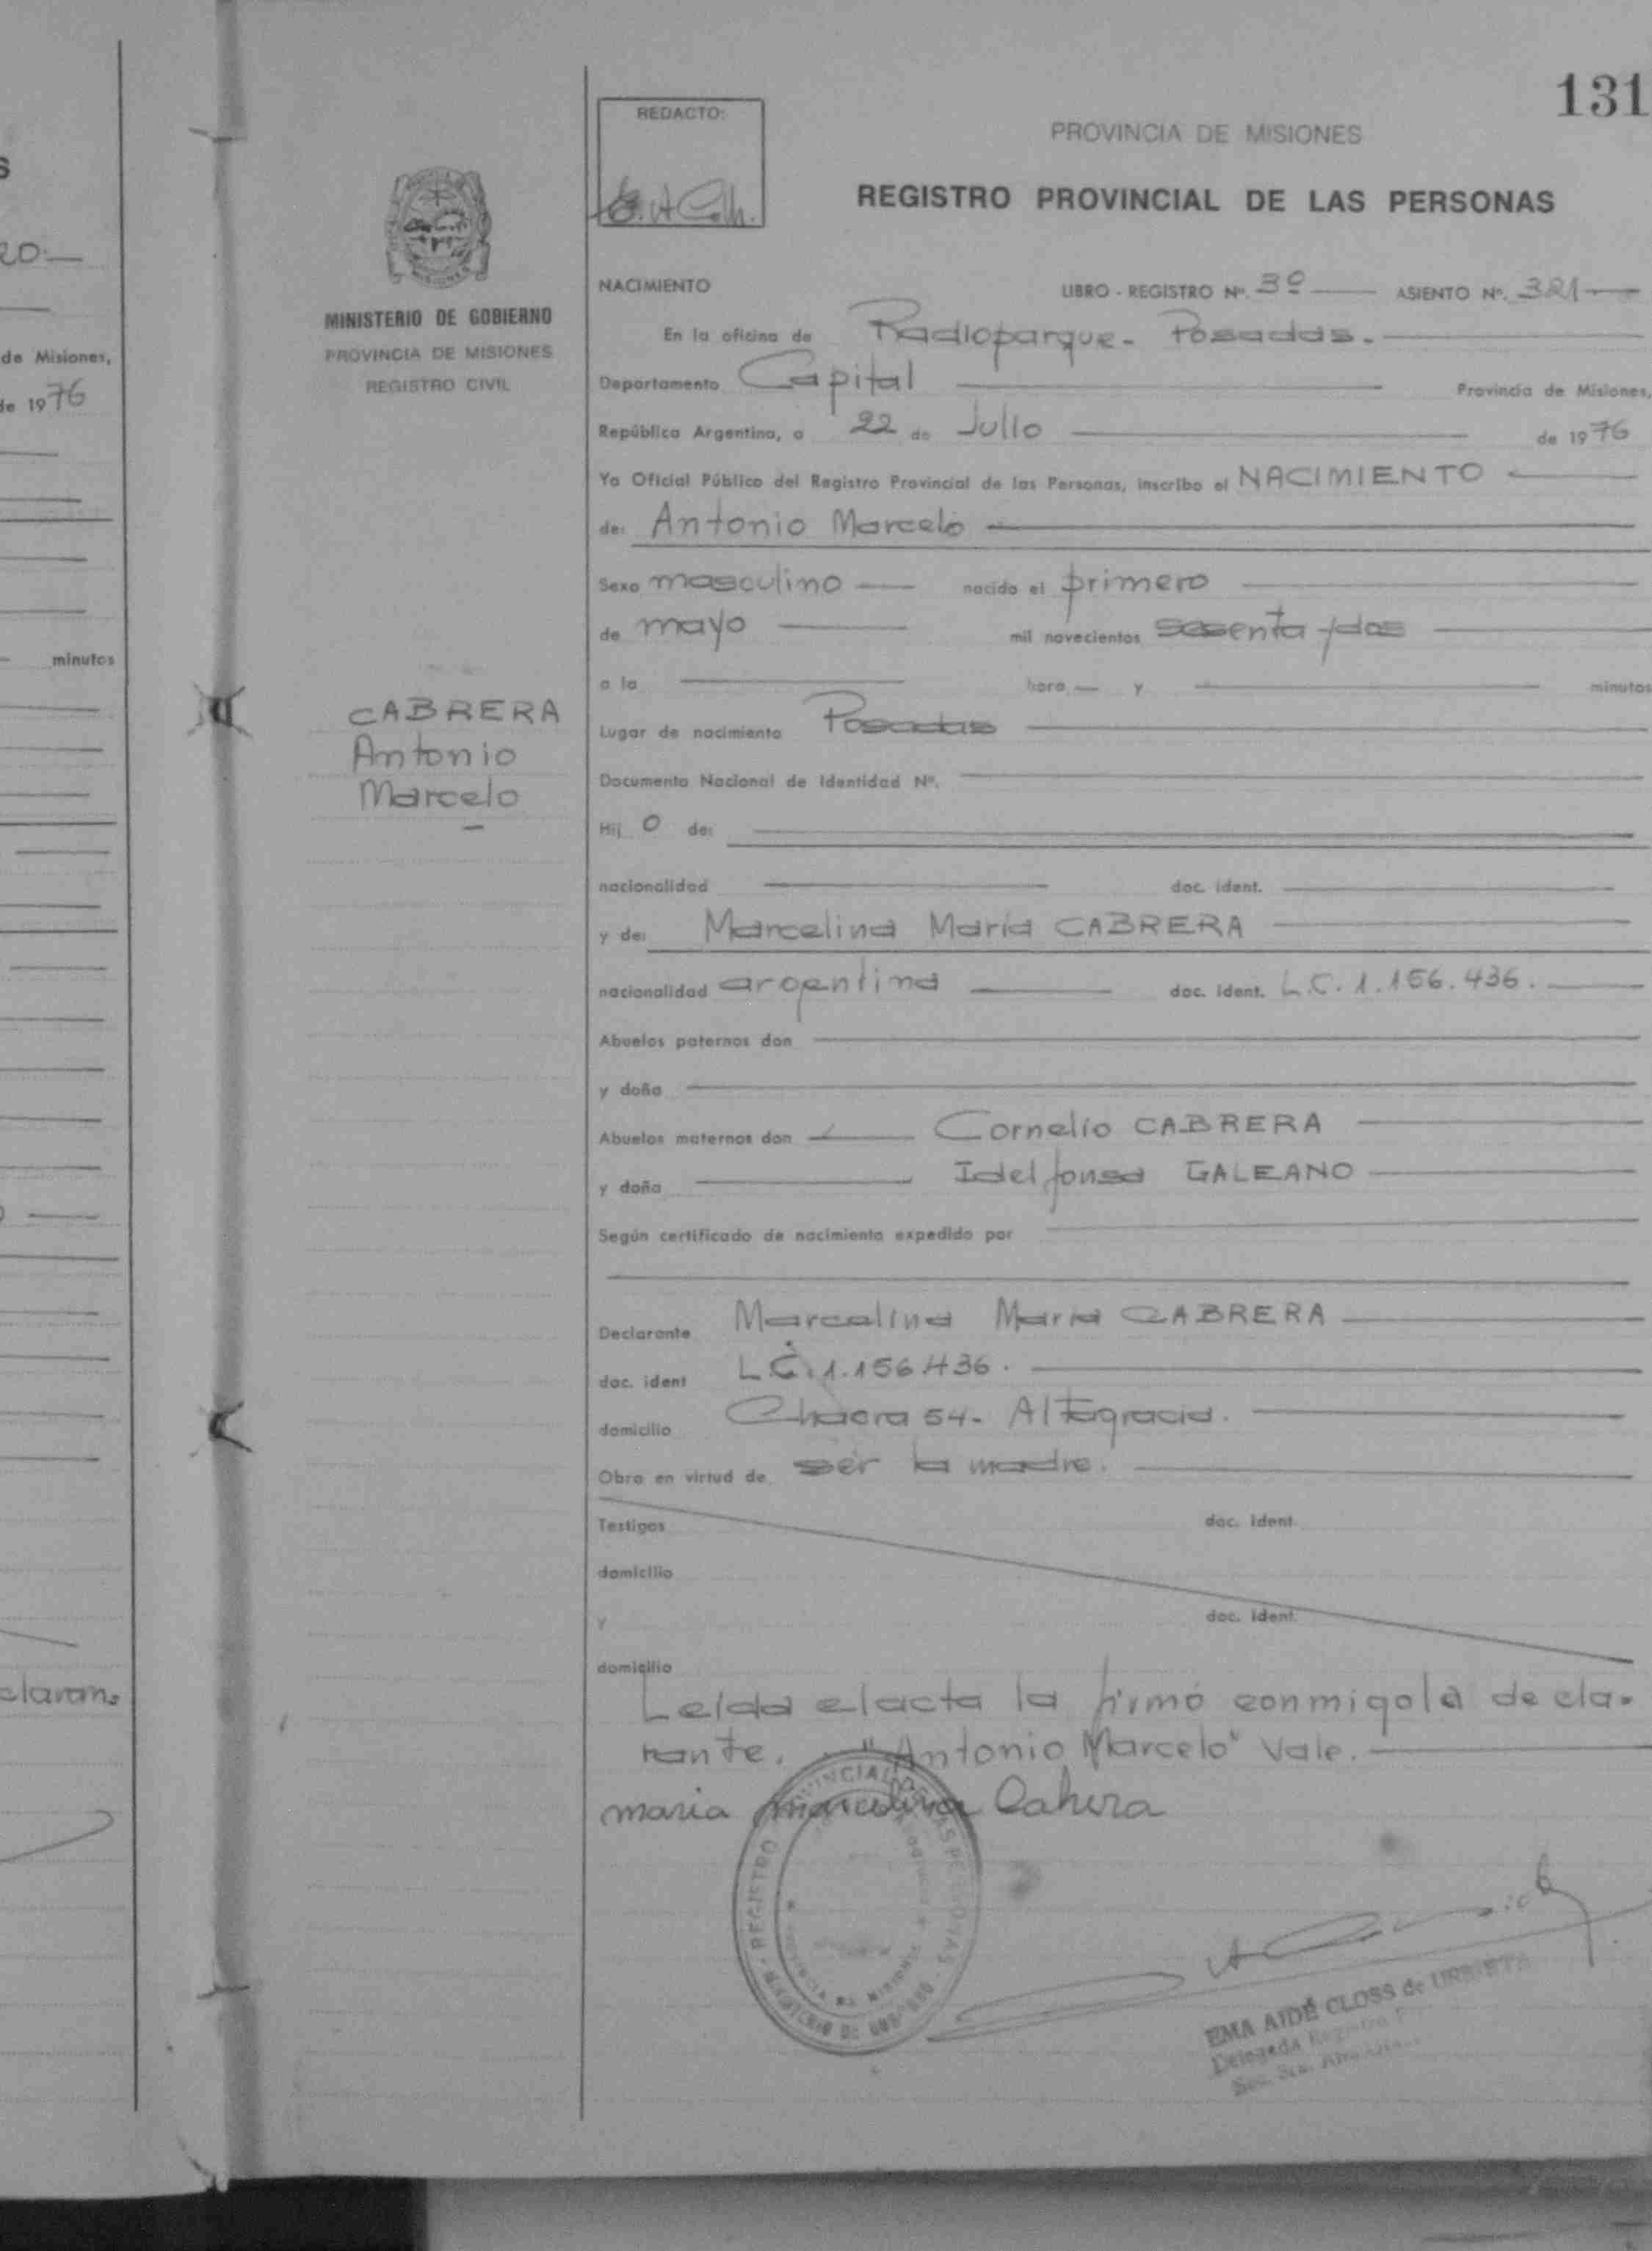 S
20.—
de Misiones,
de 1976
minutos
claran-
131
REDACTO:
PROVINCIA DE MISIONES
REGISTRO PROVINCIAL DE LAS PERSONAS
MINISTERIO DE GOBIERNO
PROVINCIA DE MISIONES
REGISTRO CIVIL
CABRERA
Antonio
Marcelo
NACIMIENTO LIBRO - REGISTRO Nº. 3º ASIENTO Nº. 321
En la oficina de Radioparque - Posadas.
Departamento Capital Provincia de Misiones,
República Argentina, a 22 de Julio de 1976
Yo Oficial Público del Registro Provincial de las Personas, inscribo el NACIMIENTO
de: Antonio Marcelo
Sexo masculino nacido el primero
de mayo mil novecientos sesenta y dos
a la hora y minutos
Lugar de nacimiento Posadas
Documento Nacional de Identidad Nº.
Hij o de:
nacionalidad doc. ident.
y de: Marcelina María CABRERA
nacionalidad argentina doc. ident. L.C. 1.156.436.
Abuelos paternos don
y doña
Abuelos maternos don Cornelio CABRERA
y doña Idelfonsa GALEANO
Según certificado de nacimiento expedido por
Declarante Marcelina María CABRERA
doc. ident L.C. 1.156.436.
domicilio Chacra 54- Altagracia.
Obra en virtud de ser la madre.
Testigos doc. ident.
domicilio
y doc. ident.
domicilio
Leída el acta la firmó conmigo la decla-
rante. "Antonio Marcelo" Vale.
maria marcelina Cabrera
REGISTRO PROVINCIAL DE LAS PERSONAS
MINISTERIO DE GOBIERNO
PROVINCIA DE MISIONES
EMA AIDÉ CLOSS de
Delegada Registro